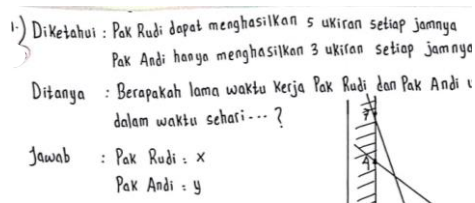 1.) Diketahui : Pak Rudi dapat menghasilkan 5 ukiran setiap jamnya
Pak Andi hanya menghasilkan 3 ukiran setiap jamnya
Ditanya : Berapakah lama waktu kerja Pak Rudi dan Pak Andi
dalam waktu sehari --- ?
Jawab : Pak Rudi : x
Pak Andi : y
7
4